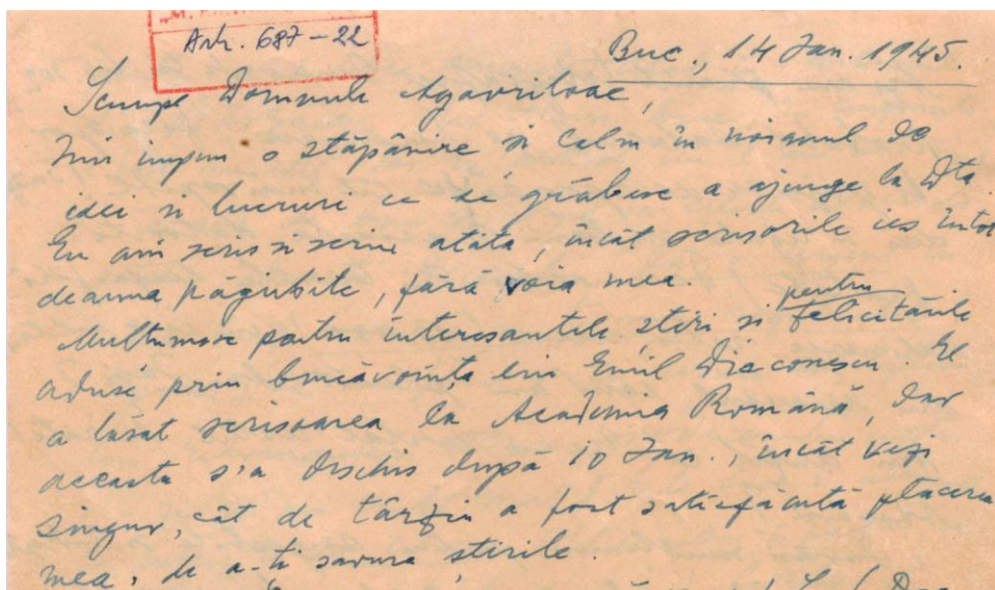 Arh. 687-22
Buc., 14 Jan. 1945.
Scumpe Domnule Agavriloae,
Îmi impun o stăpânire și calm în noianul de
idei și lucruri ce se grăbesc a ajunge la Dta.
Eu am scris și scriu atâta, încât scrisorile ies întot
deauna păgubite, fără voia mea.
Multumesc pentru interesantele știri și pentru felicitările
aduse prin bunăvoința lui Emil Diaconescu. El
a lăsat scrisoarea la Academia Română, dar
aceasta s'a deschis după 10 Jan., încât vezi
singur, cât de târziu a fost satisfăcută plăcerea
mea, de a-ți savura știrile.